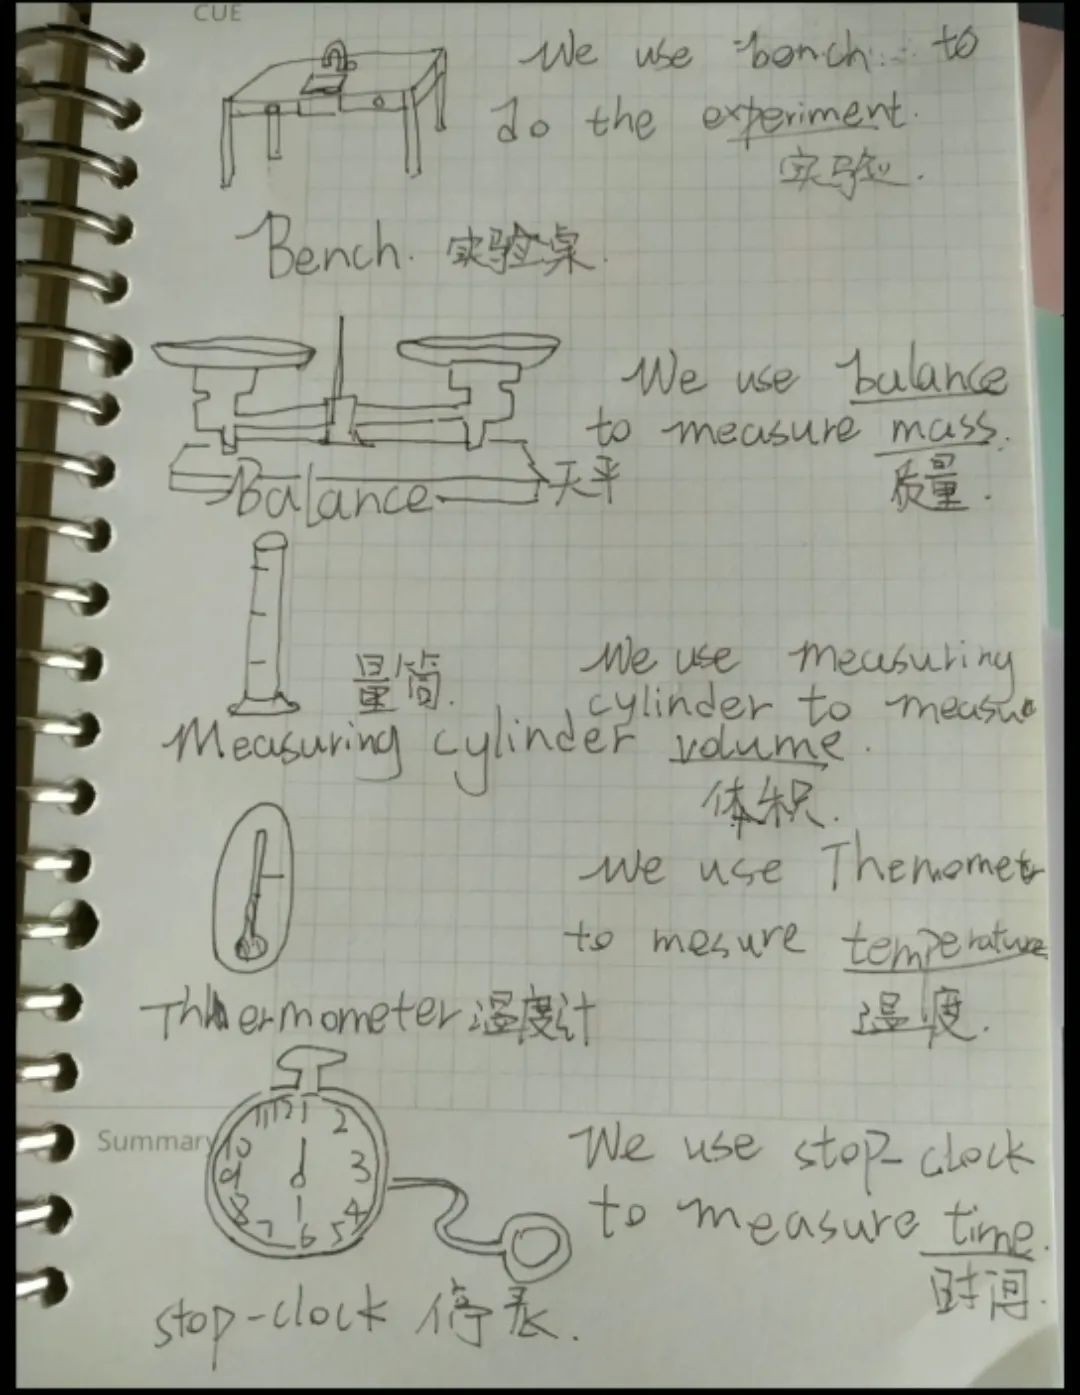 CUE
We use bench to
do the experiment.
实验.
Bench. 实验桌.
We use balance
to measure mass.
质量.
Balance 天平
量筒.
We use measuring
cylinder to measure
Measuring cylinder volume.
体积.
We use Themometr
to mesure temperature
Thermometer 温度计
温度.
Summary
11 12 1 2 3 4 5 6 7 8 9 10
We use stop-clock
to measure time.
时间.
stop-clock 停表.